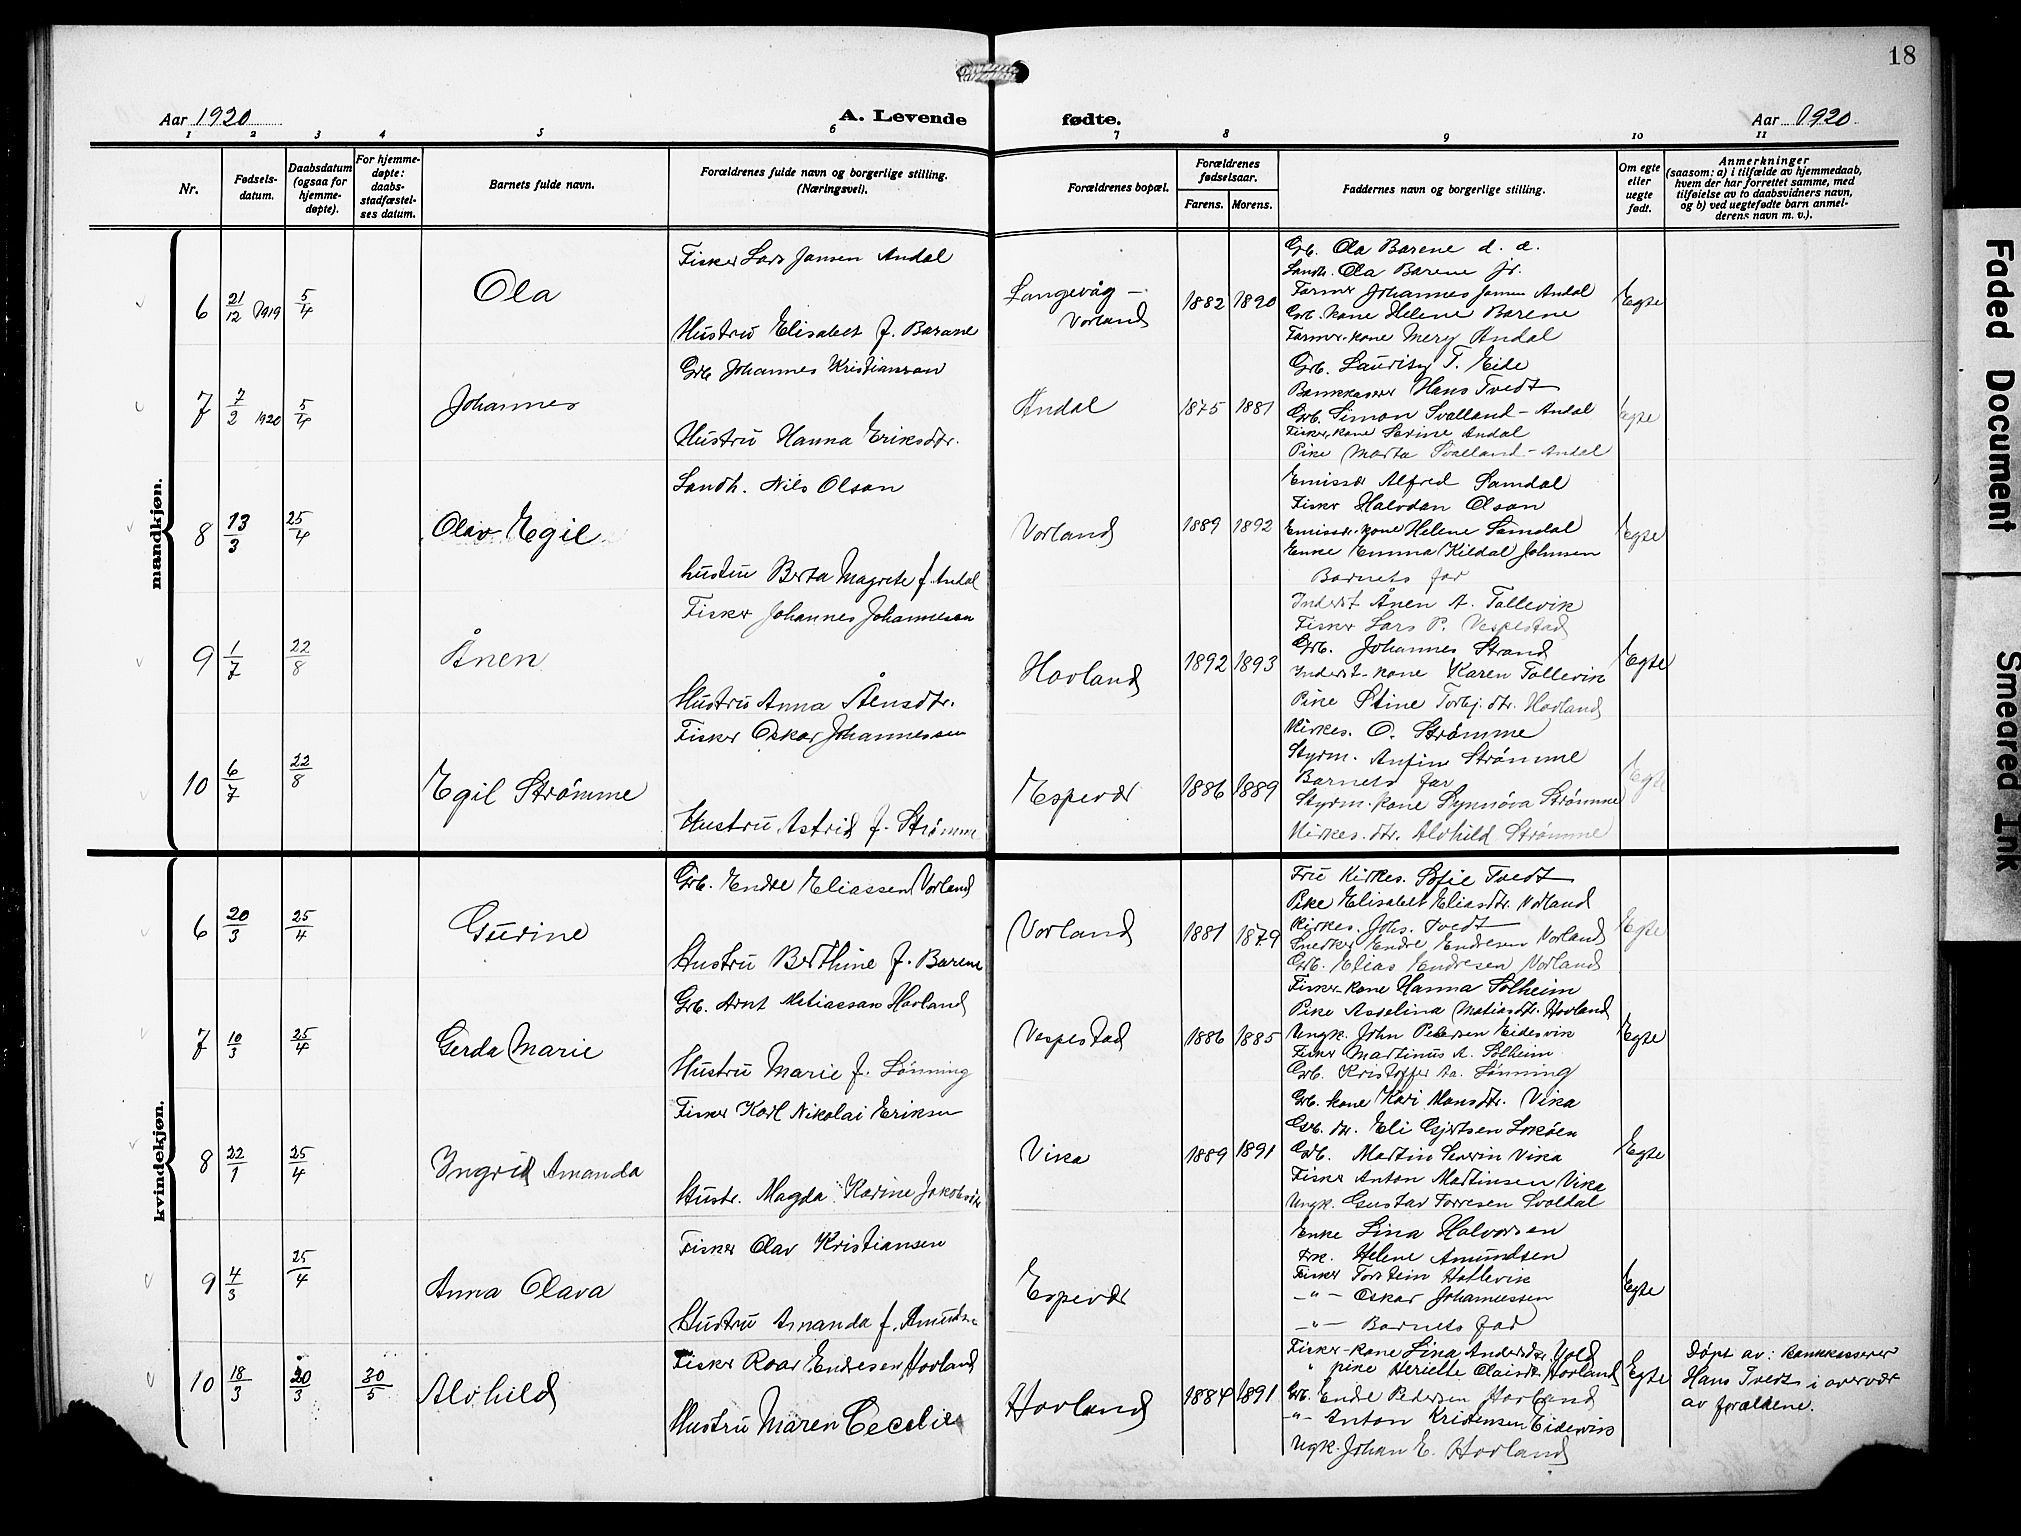 18
Aar 1920
A. Levende fødte.
Aar 1920.
1 2 3 4 5 6 7 8 9 10 11
Nr.
Fødsels-
datum.
Daabsdatum
(ogsaa for
hjemme-
døpte).
For hjemme-
døpte:
daabs-
stadfæstel-
ses datum.
Barnets fulde navn.
Forældrenes fulde navn og borgerlige stilling.
(Næringsvei).
Forældrenes bopæl.
Forældrenes
fødselsaar.
Farens. Morens.
Faddernes navn og borgerlige stilling.
Om egte
eller
uegte
født.
Anmerkninger
(saasom: a) i tilfælde av hjemmedaab,
hvem der har forrettet samme, med
tilføielse av to daabsvidners navn,
og b) ved uegtefødte barn anmel-
derens navn m. v.).
mandkjøn.
6 21/12 1919 5/4
Ola
Fisker Lars Jansen Andal
Hustru Elisabet f. Barane
Langevåg -
Vorland
1882 1890
Grb. Ola Barene d. æ.
Landh. Ola Barene jr.
Farmer Johannes Jansen Andal
Grb. kone Helene Barene
Farmer-kone Mery Andal
Egte
7 7/2 1920 5/4
Johannes
Grb Johannes Kristianson
Hustru Hanna Eriksdtr.
Andal
1875 1881
Grb. Lauritz T. Eide
Bankkaserer Hans Tvedt
Grb. Simon Svalland - Andal
Fisker, kone Serine Andal
Pike Marta Svalland - Andal
Egte
8 13/3 25/4
Olav Egil
Landh. Nils Olson
hustru Berta Magrete f. Andal
Vorland
1889 1892
Emissær Alfred Samdal
Fisker Halvdan Olson
Emissær-kone Helene Samdal
Enke Emma Kildal Johnsen
Barnets far
Egte
9 1/7 22/8
Ånen
Fisker Johannes Johannessen
Hustru Anna Ånensdtr.
Hovland
1892 1893
Inderst Ånen A. Tollevik
Fisker Lars P. Vespestad
Grb. Johannes Strand
Inderst-kone Karen Tollevik
Pike Stine Torbj.dtr. Hovland
Egte
10 6/7 22/8
Egil Strømme
Fisker Oskar Johannessen
Hustru Astrid f. Strømme
Espevær
1886 1889
Kirkes. O. Strømme
Styrm. Anfin Strømme
Barnets far
Styrm.kone Synnøva Strømme
Kirkes. dtr. Alvhild Strømme
Egte
kvindekjøn.
6 20/3 25/4
Gurine
Grb. Endre Eliassen Vorland
Hustru Berthine f. Barene
Vorland
1881 1879
Fru Kirkes. Sofie Tvedt
Pike Elisabet Eliasdtr. Vorland
Kirkes. Johs. Tvedt
Snedker Endre Endresen Vorland
Grb. Elias Endresen Vorland
Egte
7 10/3 25/4
Gerda Marie
Grb. Arnt Matiassan Hovland
Hustru Marie f. Lønning
Vespestad
1886 1885
Fisker-kone Hanna Solheim
Pike Asselina Matiasdtr. Hovland
Ungk. John Petersen Eidesvik
Fisker Martinus A. Solheim
Grb. Kristoffer Aa. Lønning
Egte
8 22/1 25/4
Ingrid Amanda
Fisker Karl Nikolai Eriksen
Hustr. Magda Karine Jakobsdtr
Vika
1889 1891
Grb. kone Kari Monsdtr. Vika
Grb. dtr. Eli Gjertsen Lokøen
Grb. Martin Severin Vika
Fisker Anton Martinsen Vika
Ungk. Gustav Torresen Svoldal
Egte
9 4/3 25/4
Anna Olava
Fisker Olav Kristiansen
Hustru Amanda f. Amundsen
Espevær
Enke Lina Halvorsen
Frk. Helene Amundsen
Fisker Torstein Hatlevik
-"- Oskar Johannessen
-"- Barnets far
Egte
10 18/3 20/3 30/5
Alvhild
Fisker Roar Endresen Hovland
Hustru Maren Cecelie
Hovland
1884 1891
Fisker-kone Lina Andersdtr. Vold
" pike Heriette Olaisdtr. Hovland
Grb. Endre Pedersen Hovland
-"- Anton Kristensen Eidesvik
Ungk. Johan E. Hovland
Egte
Døpt av: Bankkasserer
Hans Tvedt i overvær
av forældrene.
Faded Document
Smeared Ink